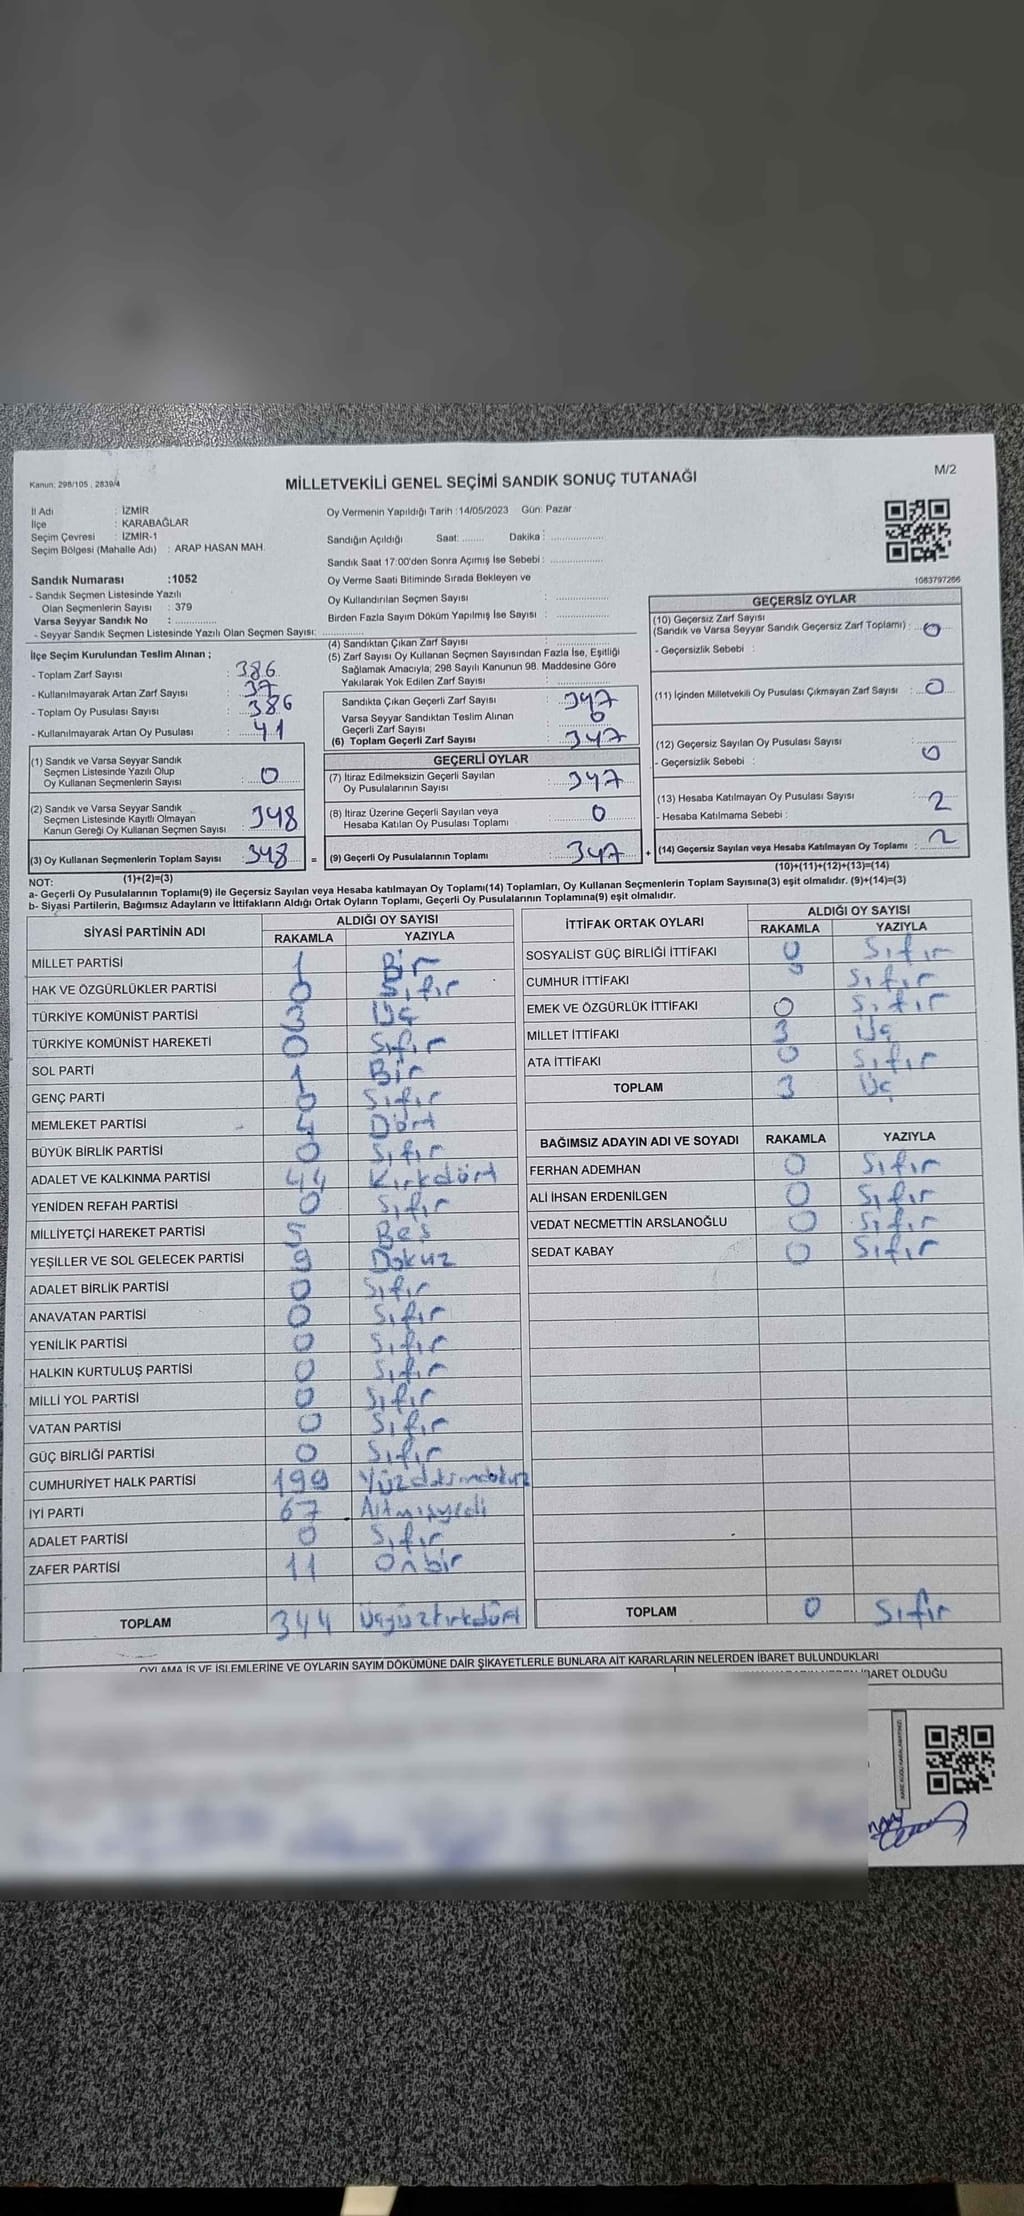 Kanun: 298/105 , 2839/4
MİLLETVEKİLİ GENEL SEÇİMİ SANDIK SONUÇ TUTANAĞI
M/2
İl Adı : İZMİR
İlçe : KARABAĞLAR
Seçim Çevresi : İZMİR-1
Seçim Bölgesi (Mahalle Adı) : ARAP HASAN MAH.
Sandık Numarası :1052
- Sandık Seçmen Listesinde Yazılı
Olan Seçmenlerin Sayısı : 379
Varsa Seyyar Sandık No : ..............
- Seyyar Sandık Seçmen Listesinde Yazılı Olan Seçmen Sayısı: ..............
Oy Vermenin Yapıldığı Tarih :14/05/2023 Gün: Pazar
Sandığın Açıldığı Saat: ........ Dakika : ..................
Sandık Saat 17:00'den Sonra Açımış İse Sebebi : ..................
Oy Verme Saati Bitiminde Sırada Bekleyen ve
Oy Kullandırılan Seçmen Sayısı : ..................
Birden Fazla Sayım Döküm Yapılmış İse Sayısı : ..................
1083797266
İlçe Seçim Kurulundan Teslim Alınan ;
- Toplam Zarf Sayısı : 386
- Kullanılmayarak Artan Zarf Sayısı : 37
- Toplam Oy Pusulası Sayısı : 386
- Kullanılmayarak Artan Oy Pusulası : 41
(1) Sandık ve Varsa Seyyar Sandık
Seçmen Listesinde Yazılı Olup
Oy Kullanan Seçmenlerin Sayısı : 0
(2) Sandık ve Varsa Seyyar Sandık
Seçmen Listesinde Kayıtlı Olmayan
Kanun Gereği Oy Kullanan Seçmen Sayısı : 348
(3) Oy Kullanan Seçmenlerin Toplam Sayısı 348 =
(1)+(2)=(3)
(4) Sandıktan Çıkan Zarf Sayısı : ..................
(5) Zarf Sayısı Oy Kullanan Seçmen Sayısından Fazla İse, Eşitliği
Sağlamak Amacıyla; 298 Sayılı Kanunun 98. Maddesine Göre
Yakılarak Yok Edilen Zarf Sayısı : ..................
Sandıkta Çıkan Geçerli Zarf Sayısı : 347
Varsa Seyyar Sandıktan Teslim Alınan
Geçerli Zarf Sayısı : 0
(6) Toplam Geçerli Zarf Sayısı : 347
GEÇERLİ OYLAR
(7) İtiraz Edilmeksizin Geçerli Sayılan
Oy Pusulalarının Sayısı : 347
(8) İtiraz Üzerine Geçerli Sayılan veya
Hesaba Katılan Oy Pusulası Toplamı : 0
(9) Geçerli Oy Pusulalarının Toplamı : 347 +
GEÇERSİZ OYLAR
(10) Geçersiz Zarf Sayısı
(Sandık ve Varsa Seyyar Sandık Geçersiz Zarf Toplamı) : 0
- Geçersizlik Sebebi :
(11) İçinden Milletvekili Oy Pusulası Çıkmayan Zarf Sayısı : 0
(12) Geçersiz Sayılan Oy Pusulası Sayısı : 0
- Geçersizlik Sebebi :
(13) Hesaba Katılmayan Oy Pusulası Sayısı : 2
- Hesaba Katılmama Sebebi :
(14) Geçersiz Sayılan veya Hesaba Katılmayan Oy Toplamı : 2
(10)+(11)+(12)+(13)=(14)
NOT:
a- Geçerli Oy Pusulalarının Toplamı(9) ile Geçersiz Sayılan veya Hesaba katılmayan Oy Toplamı(14) Toplamları, Oy Kullanan Seçmenlerin Toplam Sayısına(3) eşit olmalıdır. (9)+(14)=(3)
b- Siyasi Partilerin, Bağımsız Adayların ve İttifakların Aldığı Ortak Oyların Toplamı, Geçerli Oy Pusulalarının Toplamına(9) eşit olmalıdır.
SİYASİ PARTİNİN ADI ALDIĞI OY SAYISI
RAKAMLA YAZIYLA
MİLLET PARTİSİ 1 Bir
HAK VE ÖZGÜRLÜKLER PARTİSİ 0 Sıfır
TÜRKİYE KOMÜNİST PARTİSİ 3 Üç
TÜRKİYE KOMÜNİST HAREKETİ 0 Sıfır
SOL PARTİ 1 Bir
GENÇ PARTİ 0 Sıfır
MEMLEKET PARTİSİ 4 Dört
BÜYÜK BİRLİK PARTİSİ 0 Sıfır
ADALET VE KALKINMA PARTİSİ 44 Kırkdört
YENİDEN REFAH PARTİSİ 0 Sıfır
MİLLİYETÇİ HAREKET PARTİSİ 5 Beş
YEŞİLLER VE SOL GELECEK PARTİSİ 9 Dokuz
ADALET BİRLİK PARTİSİ 0 Sıfır
ANAVATAN PARTİSİ 0 Sıfır
YENİLİK PARTİSİ 0 Sıfır
HALKIN KURTULUŞ PARTİSİ 0 Sıfır
MİLLİ YOL PARTİSİ 0 Sıfır
VATAN PARTİSİ 0 Sıfır
GÜÇ BİRLİĞİ PARTİSİ 0 Sıfır
CUMHURİYET HALK PARTİSİ 199
İYİ PARTİ 67 Altmışyedi
ADALET PARTİSİ 0 Sıfır
ZAFER PARTİSİ 11 Onbir
TOPLAM 344
İTTİFAK ORTAK OYLARI ALDIĞI OY SAYISI
RAKAMLA YAZIYLA
SOSYALİST GÜÇ BİRLİĞİ İTTİFAKI 0 Sıfır
CUMHUR İTTİFAKI Sıfır
EMEK VE ÖZGÜRLÜK İTTİFAKI 0 Sıfır
MİLLET İTTİFAKI 3 Üç
ATA İTTİFAKI 0 Sıfır
TOPLAM 3 Üç
BAĞIMSIZ ADAYIN ADI VE SOYADI RAKAMLA YAZIYLA
FERHAN ADEMHAN 0 Sıfır
ALİ İHSAN ERDENİLGEN 0 Sıfır
VEDAT NECMETTİN ARSLANOĞLU 0 Sıfır
SEDAT KABAY 0 Sıfır
TOPLAM 0 Sıfır
OYLAMA İŞ VE İŞLEMLERİNE VE OYLARIN SAYIM DÖKÜMÜNE DAİR ŞİKAYETLERLE BUNLARA AİT KARARLARIN NELERDEN İBARET BULUNDUKLARI
İBARET OLDUĞU